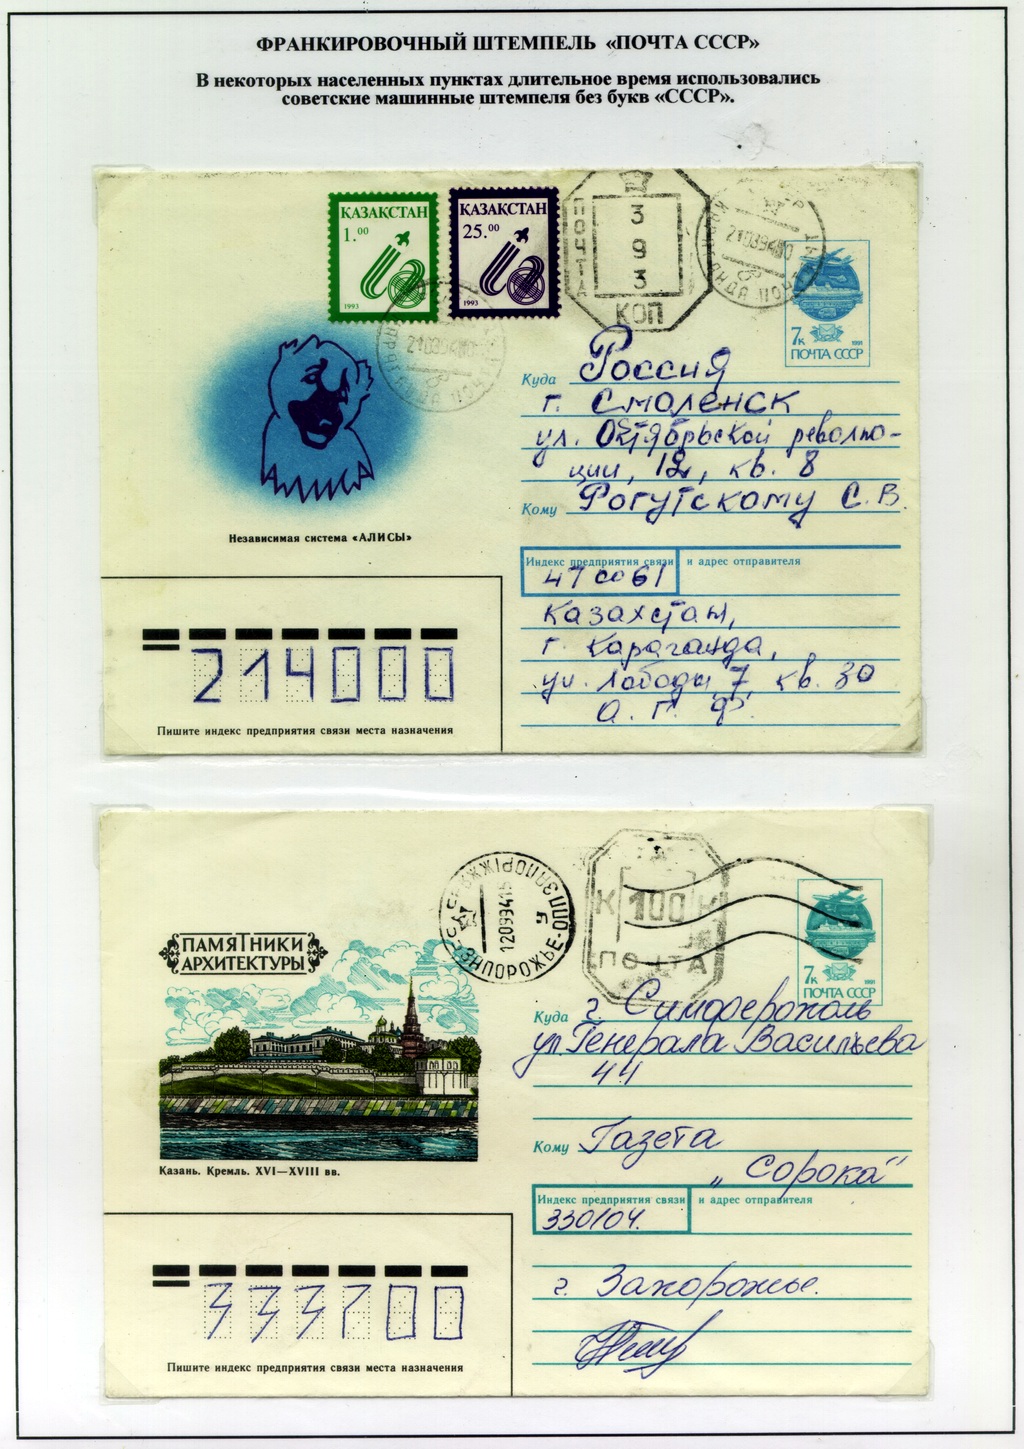 ФРАНКИРОВОЧНЫЙ ШТЕМПЕЛЬ «ПОЧТА СССР»
В некоторых населенных пунктах длительное время использовались
советские машинные штемпеля без букв «СССР».
КАЗАКСТАН
1.00
1993
КАЗАКСТАН
25.00
1993
ПОЧТА
3
9
3
КОП
7к
1991
ПОЧТА СССР
АЛИСА
Независимая система «АЛИСЫ»
Куда Россия
г. Смоленск
ул. Октябрьской револю-
ции, 12, кв. 8
Кому Рогутскому С.В.
Индекс предприятия связи и адрес отправителя
470061
Казахстан,
г. Караганда,
ул. Лободы 7, кв. 30
О. Г. Ф.
214000
Пишите индекс предприятия связи места назначения
ЗАПОРІЖЖЯ
120994
ЗАПОРОЖЬЕ
К 100 К
ПОЧТА
7к
1991
ПОЧТА СССР
ПАМЯТНИКИ
АРХИТЕКТУРЫ
Казань. Кремль. XVI—XVIII вв.
Куда г. Симферополь
ул. Генерала Васильева
44
Кому Газета
„Сорока"
Индекс предприятия связи и адрес отправителя
330104.
г. Запорожье.
333700
Пишите индекс предприятия связи места назначения